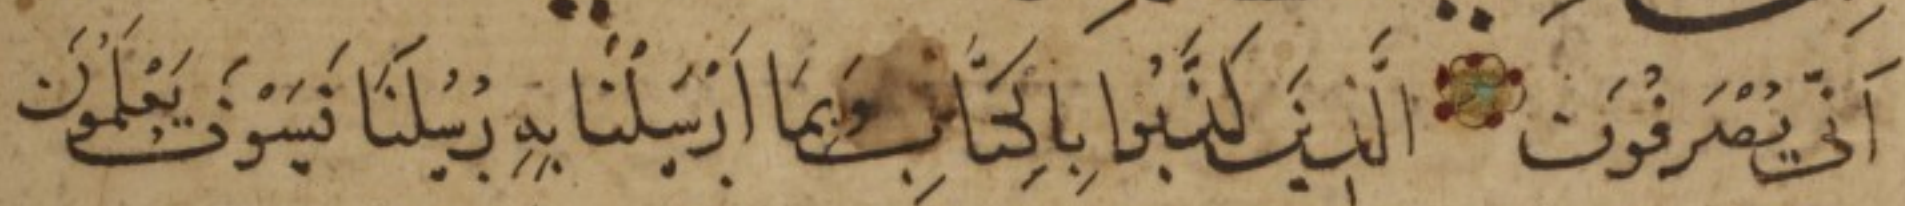 اَنّٰي يُصْرَفُونَ الَّذِينَ كَذَّبُوا بِالكِتَابِ وَبِمَا اَرْسَلْنَا بِهِ رُسُلَنَا فَسَوْفَ يَعْلَمُونَ